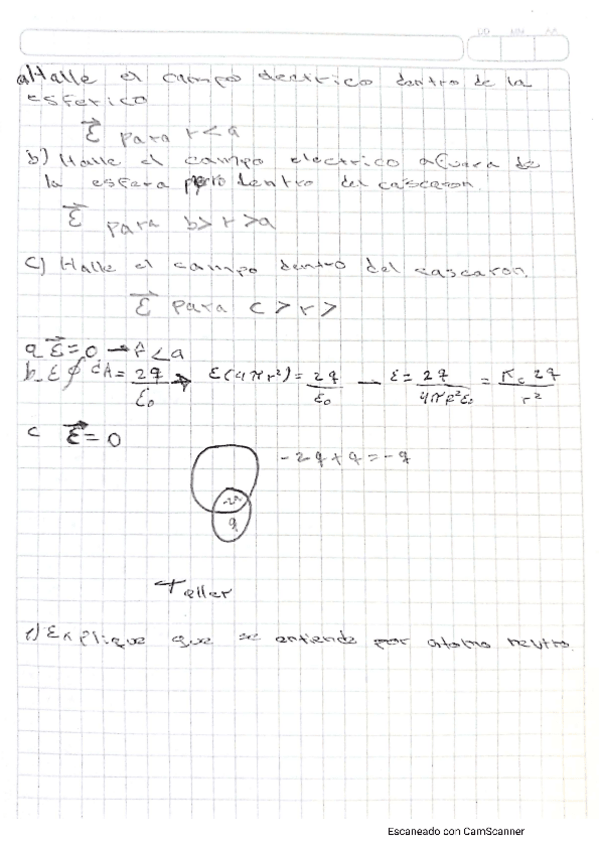 DD MM AA
a) Halle el campo electrico dentro de la
esferico
ℰ⃗ para r < a
b) Halle el campo electrico afuera de
la esfera pero dentro del cascaron.
ℰ⃗ para b > r > a
C) Halle el campo dentro del cascaron.
ℰ⃗ para c > r >
a ℰ⃗ = 0 → r < a
b_ ℰ ∮ dA = 2q/ε₀ → ℰ(4πr²) = 2q/ε₀ — ℰ = 2q/4πr²ε₀ = Kc 2q/r²
c ℰ⃗ = 0
-2q + q = -q
q
Taller
1) Explique que se entiende por atomo neutro.
Escaneado con CamScanner